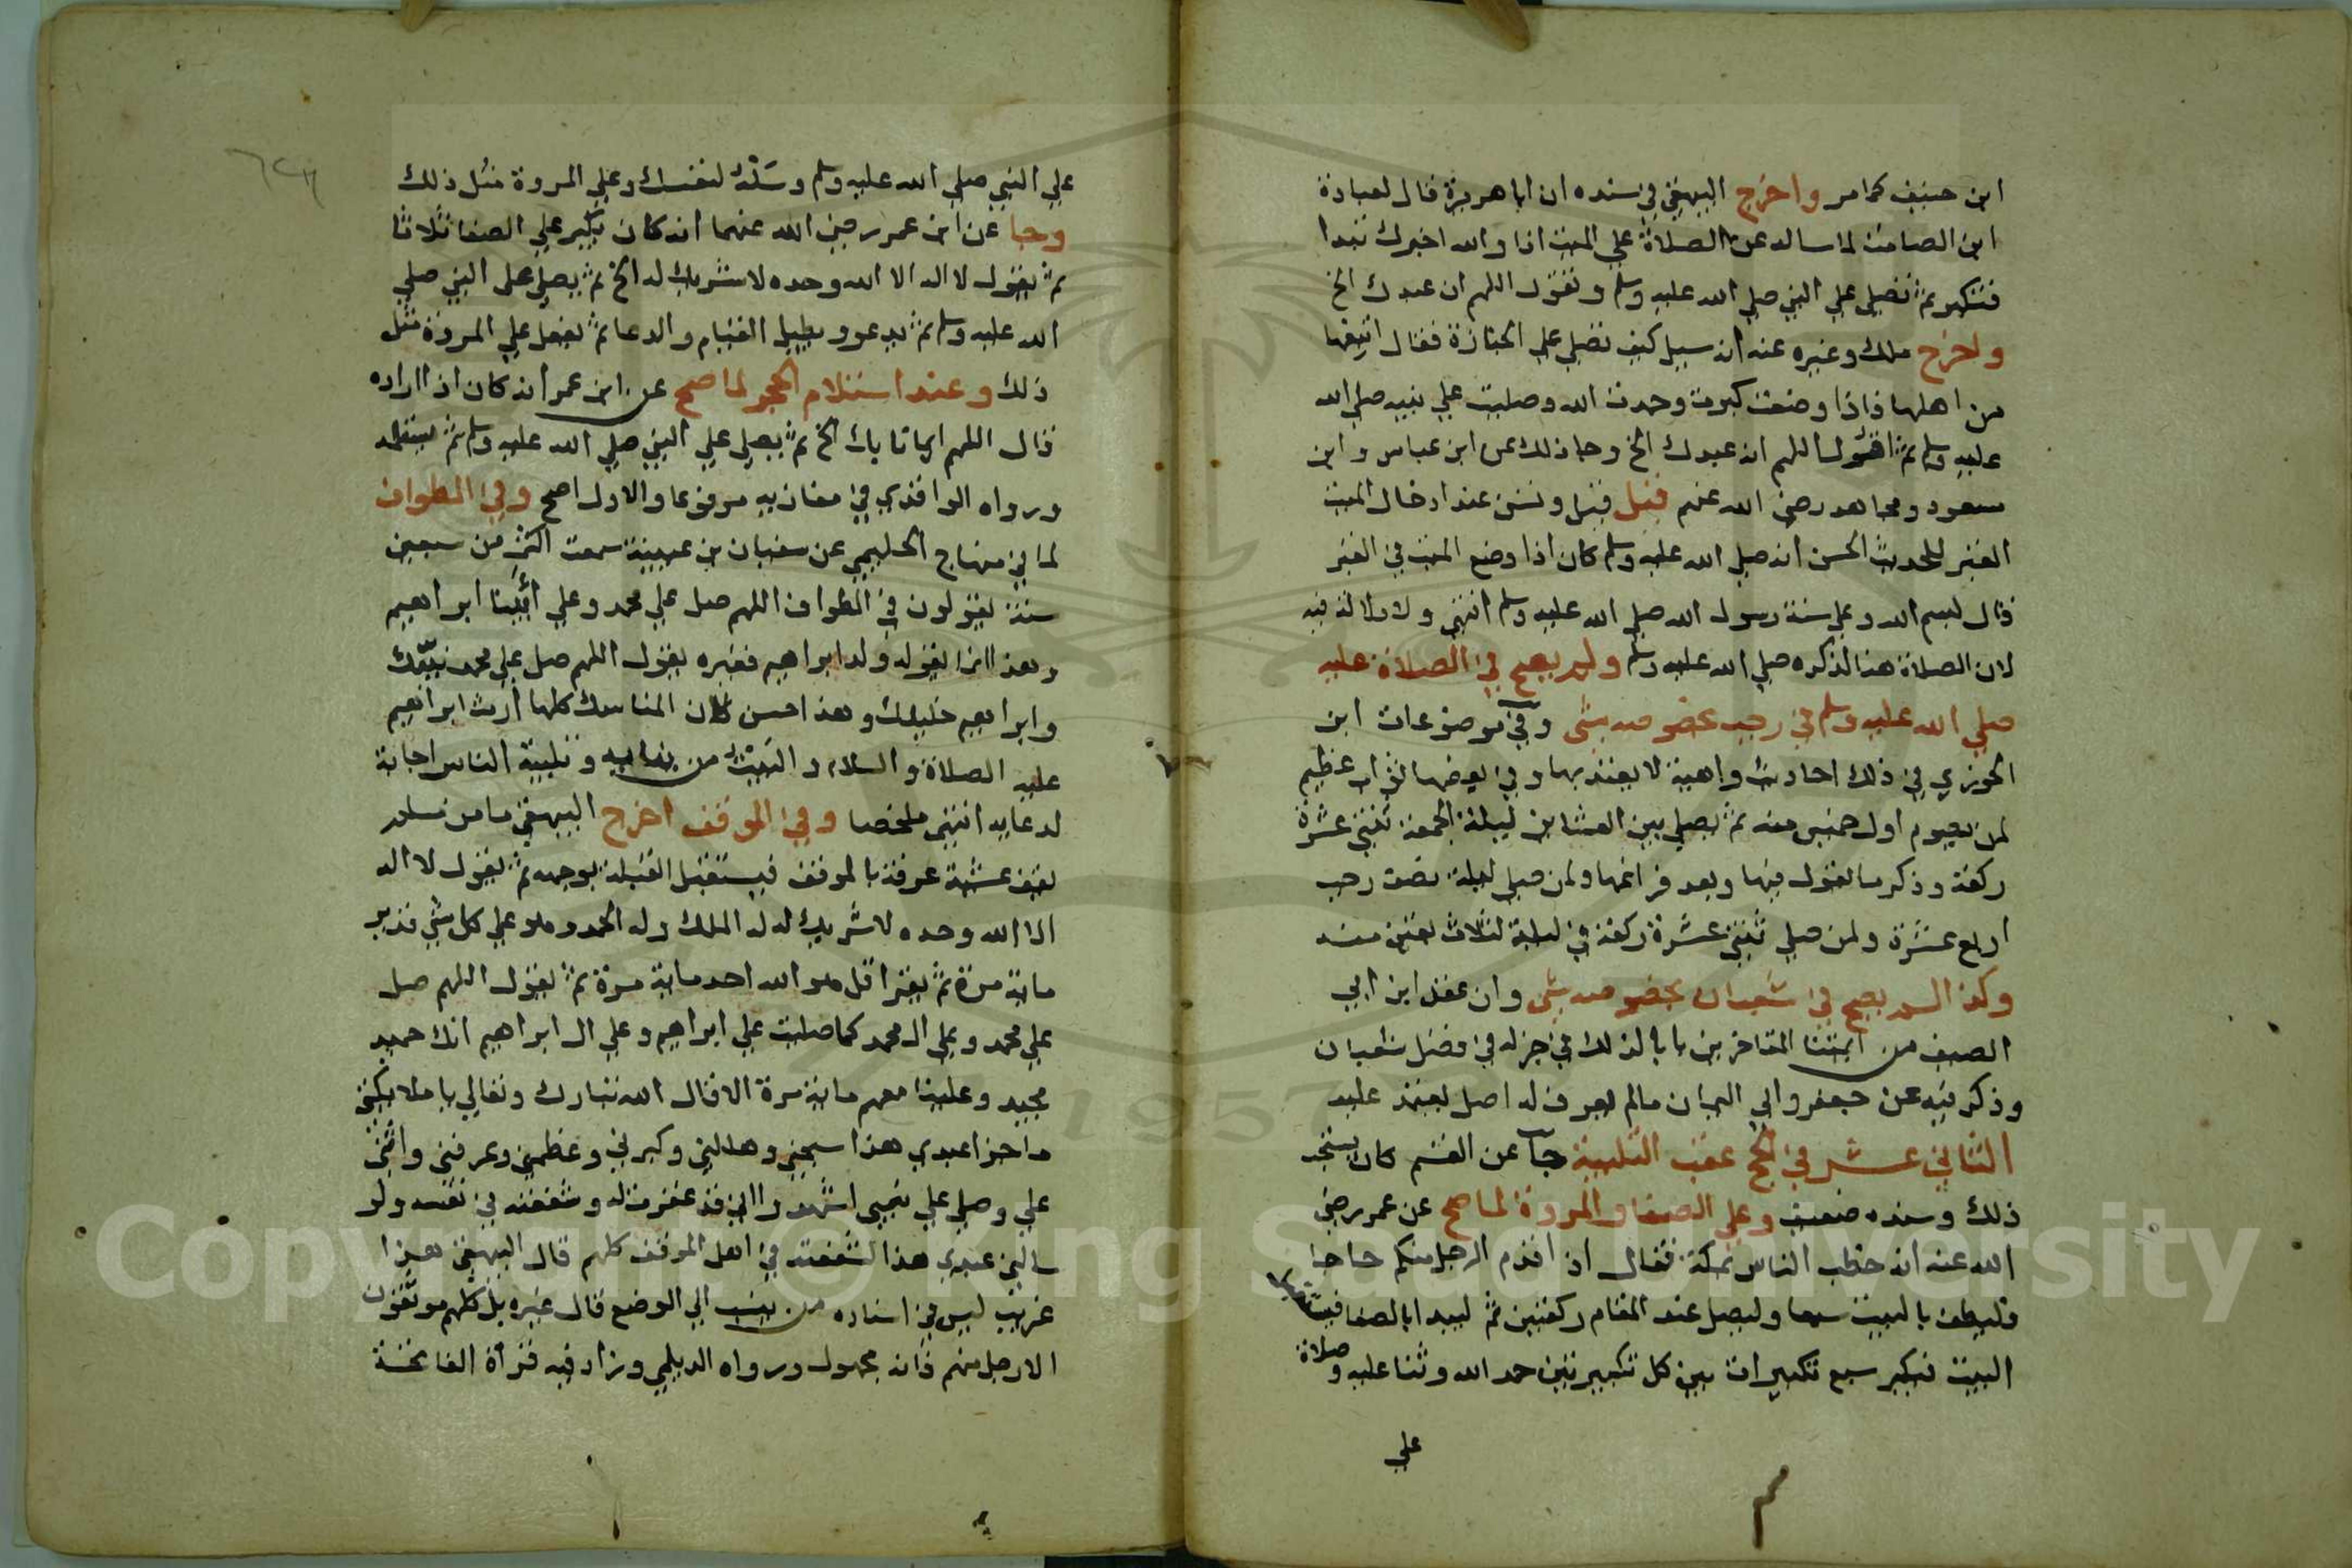 ابن حنيف كما مر واخرج البيهقي في سننه ان ابا هريرة قال لعبادة
ابن الصامت لما ساله عن الصلاة علي الميت انا والله اخبرك تبدا
فتكبر ثم تصلي علي النبي صلي الله عليه وسلم وتقول اللهم ان عبدك الخ
واخرج ملك وغيره عنه انه سيل كيف تصلي علي الجنازة فقال اتبعها
من اهلها فاذا وضعت كبرت وحمدت الله وصليت علي نبيه صلي الله
عليه وسلم ثم اقول اللهم انه عبدك الخ وجا ذلك عن ابن عباس وابن
مسعود ومجاهد رضي الله عنهم قيل قيل وتسن عند ادخال الميت
القبر للحديث الحسن انه صلي الله عليه وسلم كان اذا وضع الميت في القبر
قال بسم الله وعلي سنة رسول الله صلي الله عليه وسلم انتهي ولا دلالة فيه
لان الصلاة هنا لذكره صلي الله عليه وسلم ولم يصح في الصلاة عليه
صلي الله عليه وسلم في رجب بخصوصه شي وفي موضوعات ابن
الجوزي في ذلك احاديث واهية لا يعتد بها وفي بعضها ثواب عظيم
لمن يصوم اول خميس منه ثم يصلي بين العشاين ليلة الجمعة ثنتي عشرة
ركعة وذكر ما يقول فيها وبعد فراغها ولمن صلي ليلة نصف رجب
اربع عشرة ولمن صلي ثنتي عشرة ركعة في ليلة لثلاث بقين منه
وكذا لم يصح في شعبان بخصوصه شي وان عقد ابن ابي
الصيف من ايمتنا المتاخرين بابا لذلك في جزله في فضل شعبان
وذكر فيه عن جعفر وابي اليمان مالم يعرف له اصل يعتمد عليه
الثاني عشر في الحج عقب التلبية جا عن القسم كان يستحب
ذلك وسنده ضعيف وعلي الصفا والمروة لما صح عن عمر رضي
الله عنه انه خطب الناس بمكة فقال اذا قدم الرجل منكم حاجا
فليطف بالبيت سبعا وليصل عند المقام ركعتين ثم ليبدا بالصفا فيستقبل
البيت فيكبر سبع تكبيرات بين كل تكبيرتين حمد الله وثنا عليه وصلاة
علي
علي النبي صلي الله عليه وسلم وسئلة لنفسك وعلي المروة مثل ذلك
وجا عن ابن عمر رضي الله عنهما انه كان يكبر علي الصفا ثلاثا
ثم يقول لا اله الا الله وحده لا شريك له الخ ثم يصلي علي النبي صلي
الله عليه وسلم ثم يدعو ويطيل القيام والدعا ثم يفعل علي المروة مثل
ذلك وعند استلام الحجر لما صح عن ابن عمر انه كان اذا اراده
قال اللهم ايمانا بك الخ ثم يصلي علي النبي صلي الله عليه وسلم ثم يستلمه
ورواه الواقدي في مغازيه مرفوعا والاول اصح وفي الطواف
لما في منهاج الحليمي عن سفيان بن عيينة سمعت اكثر من سبعين
سنة يقولون في الطواف اللهم صل علي محمد وعلي ابينا ابراهيم
وهذا انما يقوله ولد ابراهيم فغيره يقول اللهم صل علي محمد نبيك
وابراهيم خليلك وهذا حسن لان المناسك كلها ارث ابراهيم
عليه الصلاة والسلام والبيت من بنايه وتلبية الناس اجابة
لدعايه انتهي ملخصا وفي الموقف اخرج البيهقي ما من مسلم
يقف عشية عرفة بالموقف فيستقبل القبلة بوجهه ثم يقول لا اله
الا الله وحده لا شريك له له الملك وله الحمد وهو علي كل شي قدير
ماية مرة ثم يقرا قل هو الله احد ماية مرة ثم يقول اللهم صل
علي محمد وعلي ال محمد كما صليت علي ابراهيم وعلي ال ابراهيم انك حميد
مجيد وعلينا معهم ماية مرة الا قال الله تبارك وتعالي يا ملايكتي
ما جزا عبدي هذا سبحني وهللني وكبرني وعظمني وعرفني واثني
علي وصلي علي نبيي اشهدوا اني قد غفرت له وشفعته في نفسه ولو
سالني عبدي هذا لشفعته في اهل الموقف كلهم قال البيهقي هذا
غريب ليس في اسناده من ينسب الي الوضع قال غيره بل كلهم موثقون
الا رجل منهم فانه مجهول ورواه الديلمي وزاد فيه قراة الفاتحة
Copyright © King Saud University
1957